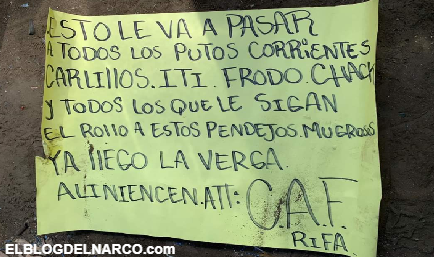 ESTO LE VA A PASAR
A TODOS LOS PUTOS CORRIENTES
CARLILLOS. ITI. FRODO. CHACK
Y TODOS LOS QUE LE SIGAN
EL ROLLO A ESTOS PENDEJOS. MUGROSOS
YA LLEGO LA VERGA.
ALINIENCEN. ATT: C.A.F.
RIFA
ELBLOGDELNARCO.com